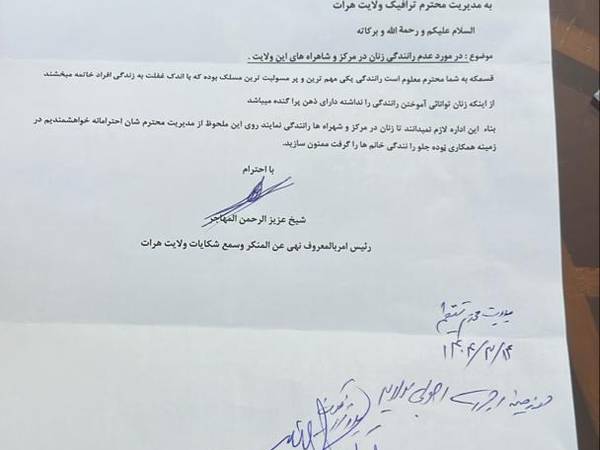 به مدیریت محترم ترافیک ولایت هرات
السلام علیکم و رحمة الله و برکاته
موضوع : در مورد عدم رانندگی زنان در مرکز و شاهراه های این ولایت .
قسمکه به شما محترم معلوم است رانندگی یکی مهم ترین و پر مسولیت ترین مسلک بوده که با اندک غفلت به زندگی افراد خاتمه میبخشند
از اینکه زنان توانائی آموختن رانندگی را نداشته دارای ذهن پرا گنده میباشد
بناء این اداره لازم نمیدانند تا زنان در مرکز و شهراه ها رانندگی نمایند روی این ملحوظ از مدیریت محترم شان احترامانه خواهشمندیم در
زمینه همکاری نموده جلو را نندگی خانم ها را گرفت ممنون سازید.
با احترام
شیخ عزیز الرحمن المهاجر
رئیس امربالمعروف نهی عن المنکر وسمع شکایات ولایت هرات
مدیریت محترم
اصولی